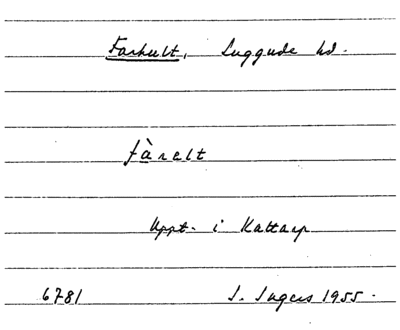 Farhult, Luggude hd.
fàrelt
Uppt. i Kattarp
6781 I. Ingers 1955.